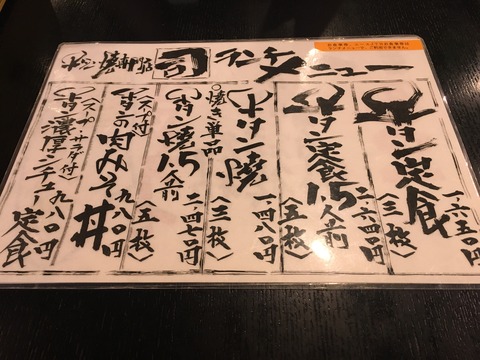 牛タン焼専門店 司 ランチメニュー
牛タン定食
一、六五〇円
〈三枚〉
牛タン定食1.5人前
二、六四〇円
〈五枚〉
○焼き単品
牛タン焼
一、四八〇円
〈三枚〉
牛タン焼1.5人前
二、四七〇円
〈五枚〉
スープ付
肉みそ丼
九八〇円
スープ、サラダ付
濃厚シチュー定食
九八〇円